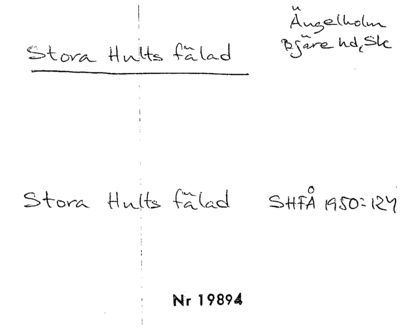 Ängelholm
Stora Hults fälad Bjäre hd, Sk
Stora Hults fälad SHFÅ 1950:124
Nr 19894